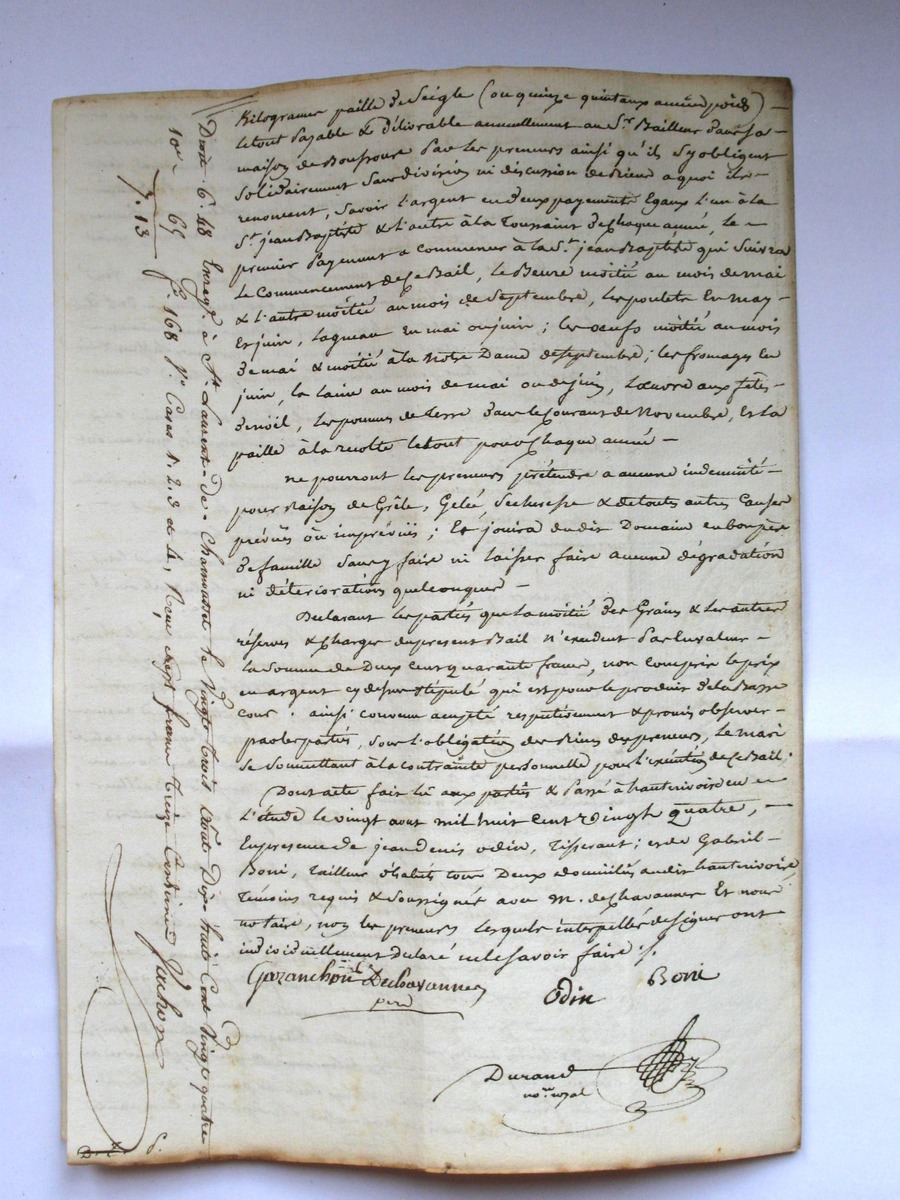 Kilogrames paille de Seigle (ou quinze quintaux ancien poids) —
le tout Payable & Délivrable annuellement au Sr. Bailleur dans sa —
maison de Boussoure Par les preneurs ainsi qu'ils s'y obligent
Solidairement Sans division ni discussion de Biens a quoi ils —
renoncent, Savoir l'argent en deux payements Egaux l'un à la
St. jean Baptiste & l'autre à la Toussaint de Chaque année, le —
premier Payement a commencer à la St. jean Baptiste qui Suivra
le Commencement de ce Bail, le Beure moitié au mois de mai
& l'autre moitié au mois de Septembre, les poulets En may —
Et juin, l'agneau En mai ou juin ; les oeufs moitié au mois
de mai & moitié à la Notre Dame de Septembre ; les fromages En
juin, la laine au mois de mai ou de juin, aux fêtes —
de noël, les pommes de terre dans le Courant de Novembre, Et la
paille à la recolte le tout pour Chaque année —
ne pourront les preneurs prétendre a aucune indemnité —
pour Raison de Grêle, Gelée, Secheresse & de touts autres Causes
prévües ou imprévües ; Et jouira du dit Domaine en bon père
de famille Sans y faire ni laisser faire aucune dégradation
ni déteriorations quelconques —
Declarant les parties que la moitié des Grains & les autres
réserves & Charges du present Bail n'excedent Pas En valeur —
la Somme de Deux Cent quarante francs, non Compris le prix
en argent cy dessus Stipulé qui est pour le produit de la Basse
Cour : ainsi convenu accepté respectivement & promis observer —
par les parties, Sous l'obligation des Biens des preneurs, le mari
Se Soumettant à la contrainte personnelle pour l'exécution de ce Bail ;
Dont acte fait lû aux parties & Passé à hauterivoire en —
l'étude le vingt aout mil huit Cent vingt quatre, —
En presence de jean Denis odin, Tisserant ; et de Gabriel —
Boni, Tailleur d'habits tous Deux domiciliés au dit hauterivoire,
Témoins requis & Soussignés avec M. de Chavannes Et nous
notaire, non les preneurs lesquels interpellés de Signer ont
individuellement Declaré ne le Savoir faire ./.
Garanchon Dechavannes
père
Odin
Boni
Durand
nore. royal
Droit 6. 48 Enregé. à St. Laurent-de-Chamousset le Vingt trois Août Dix huit Cent Vingt quatre
10e 65 fo. 168 Vo. Cases 1. 2. 3 et 4, Reçu sept francs treize Centimes
7. 13